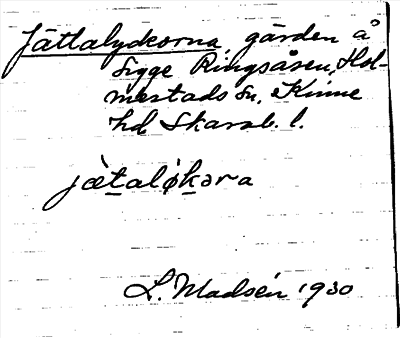 Jättalyckorna, gården å
Sygge Ringsåsen, Hol-
mestads sn, Kinne
hd Skarab. l.
jæ̀taløkəra
L. Madsén 1930